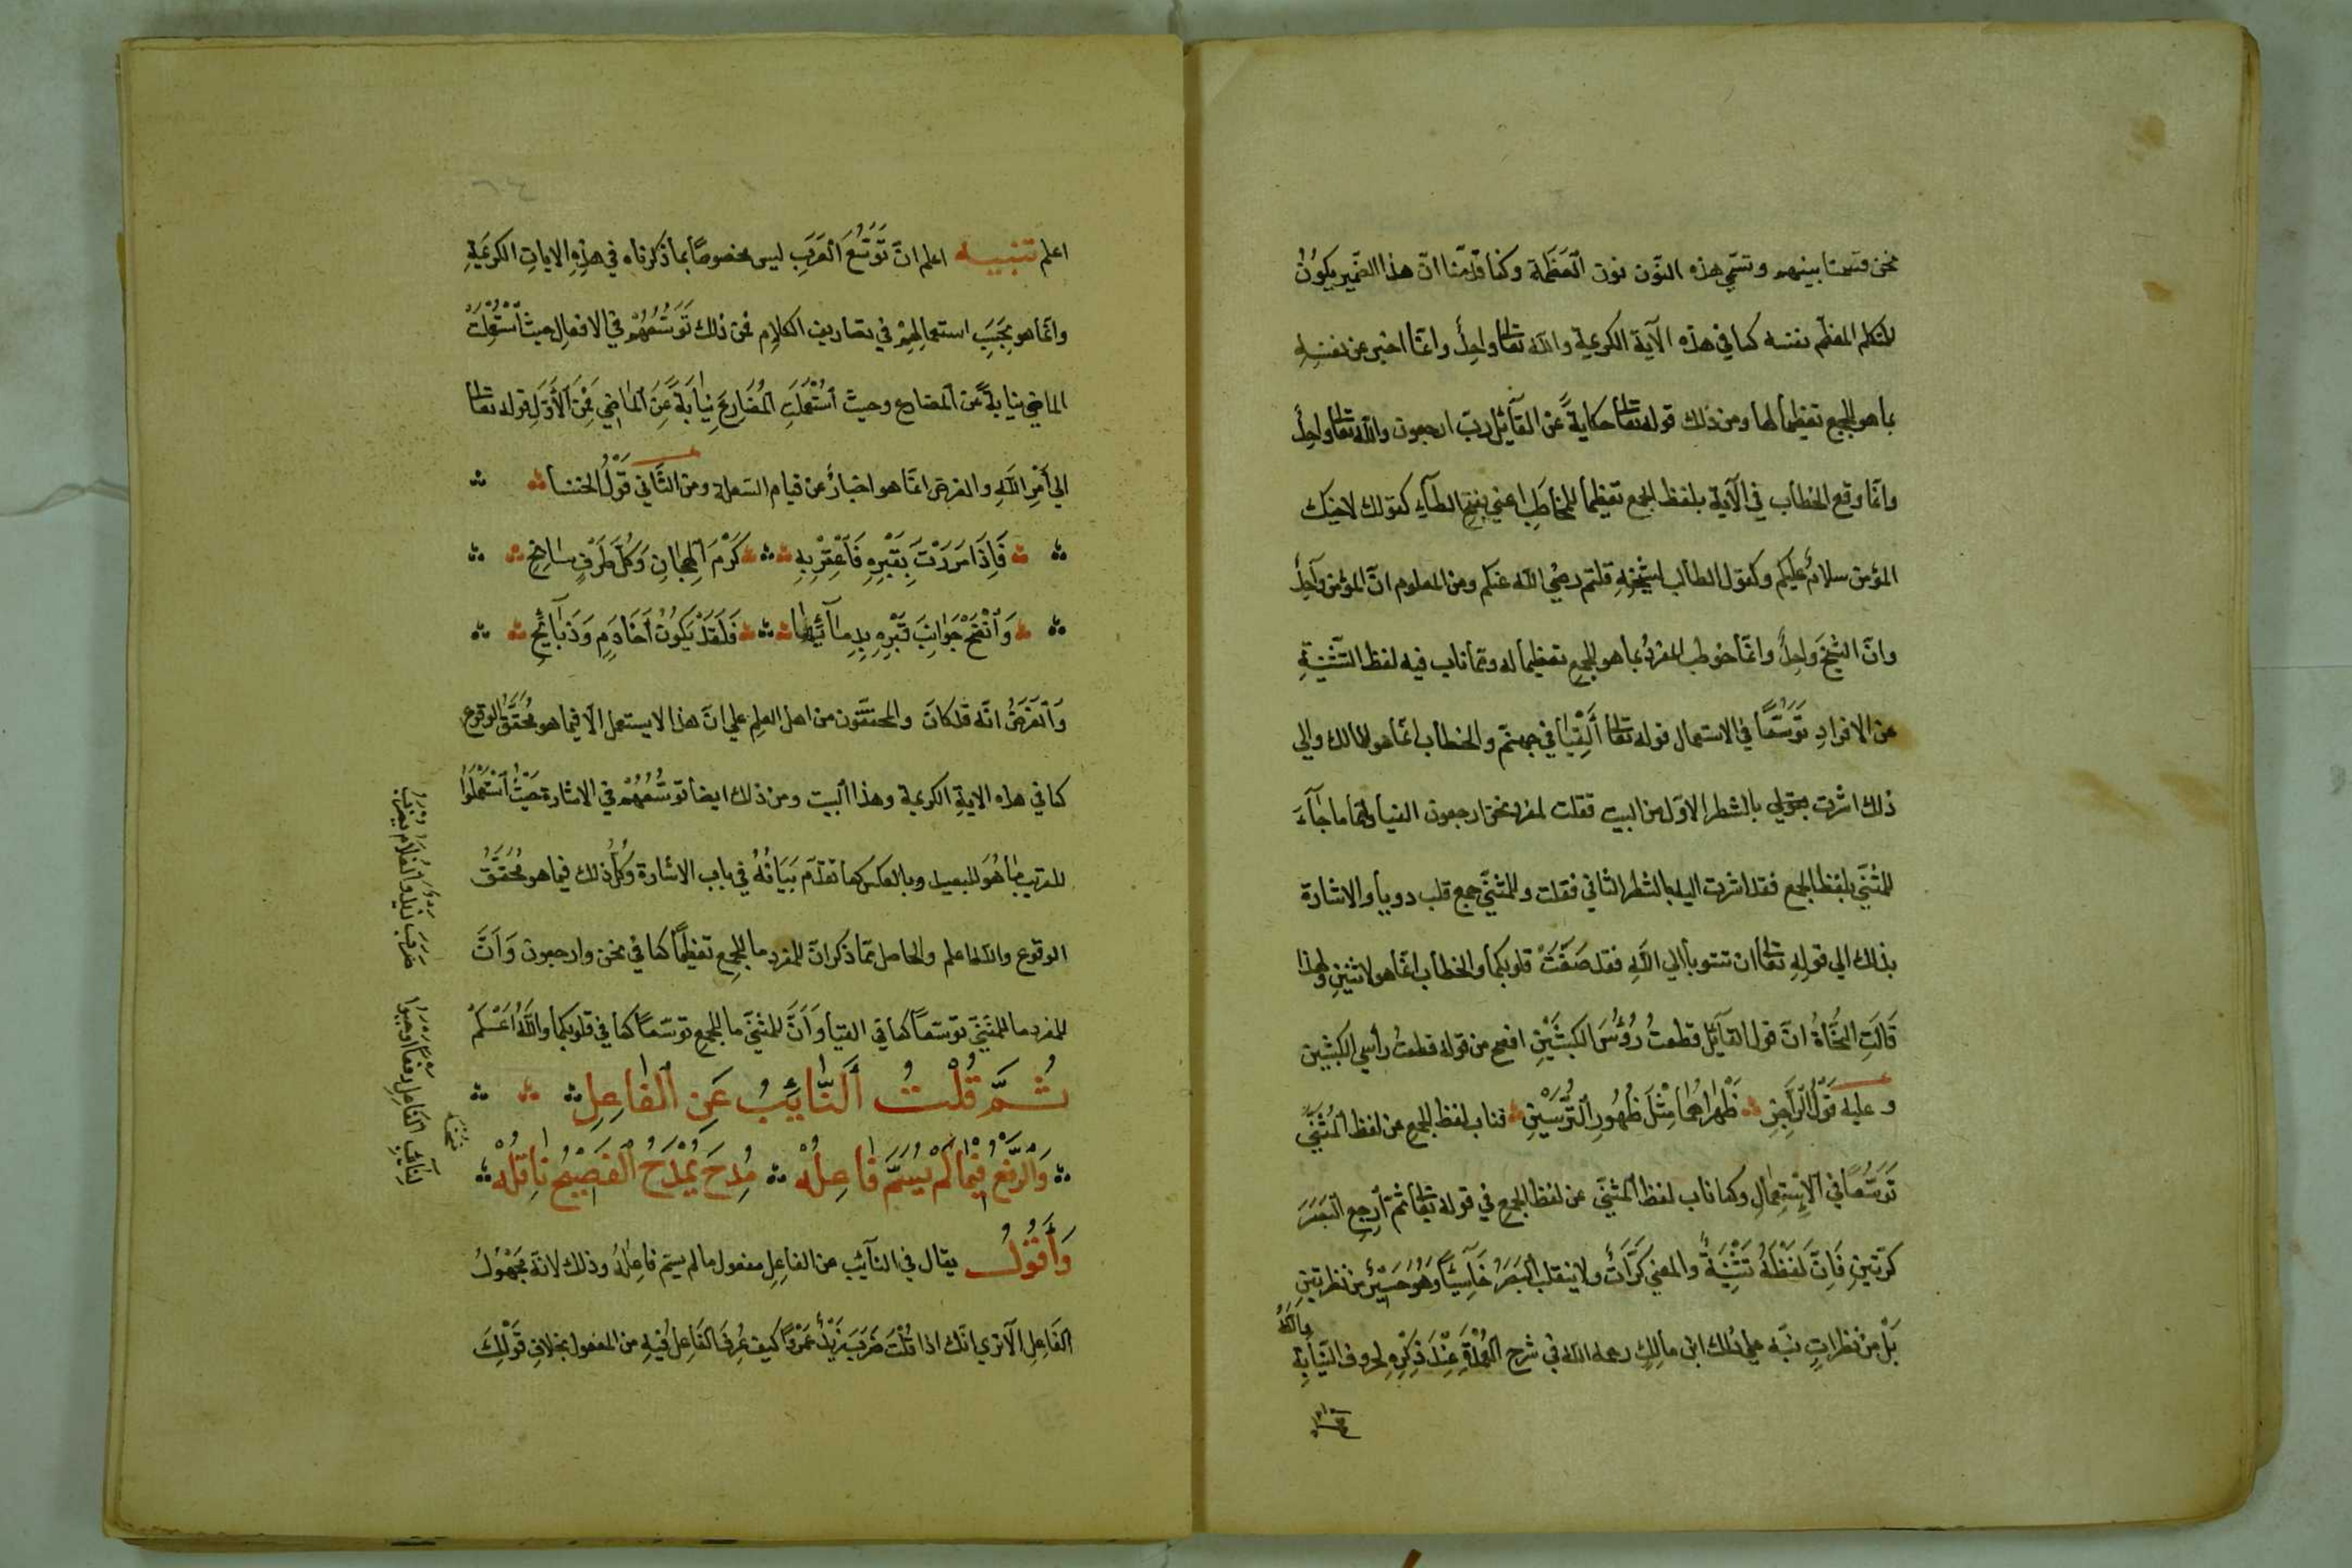 نحن قسمنا بينهم وتسمى هذه النّون نون العَظَمة وكنا قدّمنا انّ هذا الضّمير يكونُ
للمتكلم المعظّم نفسه كما في هذه الآية الكريمة والله تعالى واحدٌ وانّما اخبر عن نفسِهِ
بما هو للجمع تعظيما لها ومن ذلك قوله تعالى حكايةً عن القآئل ربّ ارجعون والله تعالى واحِدٌ
وانّما وقع الخطاب في الآية بلفظ الجمع تعظيما للمخاطَبِ اعني بفتح الطآءِ كقولك لاخيك
المؤمن سلامٌ عليكم وكقول الطالب لشيخِهِ قلتم رضي الله عنكم ومن المعلوم انّ المؤمن واحِدٌ
وانّ الشيخَ واحِدٌ وانّما خوطب المفردُ بما هو للجمع تعظيما له وممّا ناب فيه لفظ التّثنِيَةِ
عن الافرادِ تَوَسُّعًا في الاستعمال قوله تعالى أَلْقِيَا في جهنّم والخطاب انّما هو لمالك والى
ذلك اشرت بقولي بالشطر الاوّل من البيت فقلت لمفرد نحن ارجعون القيا لهما ما جآءَ
للمثنّى بلفظ الجمع فقد اشرت اليه بالشطر الثاني فقلت وللمثنّى جمع قلب دويا والاشارة
بذلك الى قولِهِ تعالى ان تتوبا الى اللهِ فقد صَغَتْ قلوبكما والخطاب انّما هو لاثنينِ ولهذا
قَالَتِ النُّحَاةُ انّ قول القآئل قطعتُ رُؤُسَ الكبشَيْنِ افصح من قوله قطعتُ رأسي الكبشين
وعليه قَوْلُ الرَّاجِزِ ظَهْرَاهُمَا مِثْلُ ظُهُورِ التُّرْسَيْنِ فناب لفظ الجمع عن لفظ المُثَنَّى
تَوَسُّعًا في الاِسْتِعْمَالِ وكما ناب لفظ المثنّى عن لفظ الجمع في قوله تعالى ثم ارجِعِ البَصَرَ
كرّتينِ فَاِنَّ لَفْظَهُ تَثْنِيَةٌ والمعنى كَرَّاتٌ ولا ينقلب البَصَرُ خَاسِئًا وَهُوَ حَسِيْرٌ من نظرتينِ
بَلْ مِنْ نظراتٍ نبّه على ذلك ابن مالِكٍ رحمه الله في شرح العُمْدَةِ عِنْدَ ذِكْرِهِ لحروف النّيَابةِ
اعلم تنبيه اعلم انّ تَوَسُّعَ العَرَبِ ليس مخصوصًا بما ذكرناه في هذِهِ الاياتِ الكريمَةِ
وانّما هو بِحَسَبِ استعمالِهِمْ في تصاريف الكلامِ فمن ذلك تَوَسُّعُهُمْ في الافعالِ حيث اسْتُعْمِلَتْ
الماضي نيابةً عن المضارع وحيث استُعْمِلَتِ المُضَارِعَ نِيَابَةً عَنِ الماضي فَمِنَ الأَوَّلِ قوله تعالى
اتى أَمْرُ اللهِ والغرض انّما هو اخبارٌ عن قيام السّعلة ومن الثّاني قَوْلُ الخنسا
فَاِذَا مَرَرْتَ بِقَبْرِهِ فَاعْقِرْ بِهِ كَرْمَ الهِجَانِ وَكُلَّ طَرْفٍ سَابِحِ
وَانْضَحْ جَوَانِبَ قَبْرِهِ بِدِمَآئِهَا فَلَقَدْ يَكُونُ أَخَا دَمٍ وَذَبَآئِحِ
وَالغَرَضُ انّه قد كانَ والمحققون من اهل العلمِ على انّ هذا لا يستعمل الّا فيما هو مُحَقَّقُ الوقوع
كما في هذه الايةِ الكريمة وهذا البيت ومن ذلك ايضا توسُّعُهُمْ في الاشارة حَيْثُ اسْتَعْمَلُوا
للقريب مَا هُوَ للبعيد وبالعكس كما تقدّم بَيَانُهُ في باب الاشارة وكُلُّ ذلك فيما هو مُحَقَّقُ
الوقوع والله اعلم والحاصل ممّا ذكر انّ للمفرد ما للجمع تعظيمًا كما في نحن وارجعون وَأَنَّ
للمفرد ما للمثنّى توسّعًا كما في القيا وَأَنَّ للمثنّى ما للجمع توسّعًا كما في قلوبكما واللهُ اعْلَمْ
ثُمَّ قُلْتُ النَّائِبُ عَنِ الفَاعِلِ
وَالرَّفْعُ فِيْمَا لَمْ يُسَمَّ فَاعِلُهْ مُدِحَ يُمْدَحُ الفَصِيْحُ نَاقِلُهْ
وَأَقُوْلُ يقال في النآئب عن الفاعِلِ مفعول ما لم يسمّ فاعِلُهُ وذلك لانّه مَجْهُوْلُ
الفَاعِلِ الا ترى انّك اذا قُلْتَ ضَرَبَ زَيْدٌ عَمْرًا كيف عُرِفَ الفَاعِلُ فيهِ من المفعول بخلافِ قَوْلِكَ
ضَرَبَ زيد والغلام
لنآيب الفَاعِلِ رفعًا اوجبوا